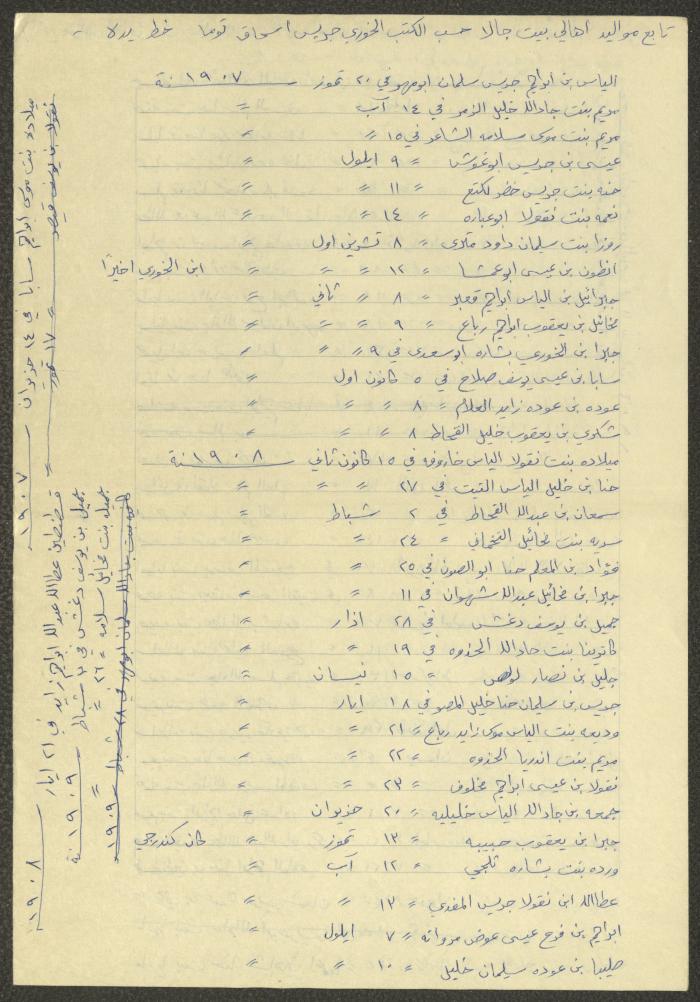 تابع مواليد اهالي بيت جالا حسب الكتب الخوري جريس اسحاق توما خط يده -
الياس بن ابراهيم جريس سلمان ابومهر في ٢٠ تموز ١٩٠٧ سنة
مريم بنت جادالله خليل الزمر في ١٤ آب =
مريم بنت موسى سلامه الشاعر في ١٥ = =
عيسى بن جريس ابوغوش = ٩ ايلول =
حنه بنت جريس خضر لكتع = ١١ = =
نعمه بنت نقولا ابوعباره = ١٤ = =
روزا بنت سليمان داود = ٨ تشرين اول =
انطون بن عيسى ابوعمشا = ١٢ = = = ابن الخوري اخيرًا
جبرائيل بن الياس ابراهيم قعبر = ٨ = ثاني =
مخائيل بن يعقوب ابراهيم رباع = ٩ = = =
جبرا بن الخوري بشاره ابوسعدى في ٩ = = =
سابا بن عيسى يوسف صلاح في ٥ كانون اول =
عوده بن عوده زايد العلام = ٨ = = =
شكري بن يعقوب خليل القحاط ٨ = = =
ميلاده بنت نقولا الياس خاروفه في ١٥ كانون ثاني ١٩٠٨ سنة
حنا بن خليل الياس التيت في ٢٧ = = =
سمعان بن عبدالله القحاط في ٢ شباط =
سريه بنت مخائيل = ٢٤ = =
فؤاد بن المعلم حنا ابوالصون في ٢٥ = =
جبرا بن مخائيل عبدالله شهوان في ١١ = =
جميل بن يوسف دغش في ٢٨ اذار =
كاترينا بنت جادالله الحذوه في ١٩ = =
خليل بن نصار = ١٥ نيسان =
جريس بن سليمان حنا خليل المصو في ١٨ ايار =
وديعه بنت الياس موسى زايد رباع = ٢١ = =
مريم بنت اندريا الحذوه = ٢٢ = =
نقولا بن عيسى ابراهيم مخلوف = ٢٣ = =
جمعه بن جادالله الياس خليليه = ٢٠ حزيران =
جبرا بن يعقوب حبيبه = ١٣ تموز = كان كندرجي
ورده بنت بشاره ثلجي = ١٢ آب =
عطاالله ابن نقولا جريس المفدي = ١٣ = =
ابراهيم بن فرح عيسى عوض مروانه = ٧ ايلول =
صليبا بن عوده سليمان خليل = ١٠ = =
ميلاده بنت موسى ابراهيم سابا في ١٤ حزيران ١٩٠٧
نقولا بن يوسف قيصر = ١٧ تموز =
قسطنطين عطاالله عبدالله ابراهيم زايد في ٢١ ايار ١٩٠٨
جميل بن يوسف دغش في ٣ شباط ١٩٠٩ سنة
جميله بنت مخائيل سلامه = ٢٦ = =
بنت جادالله سلمان ابومهر في ٢٨ شباط ١٩٠٩